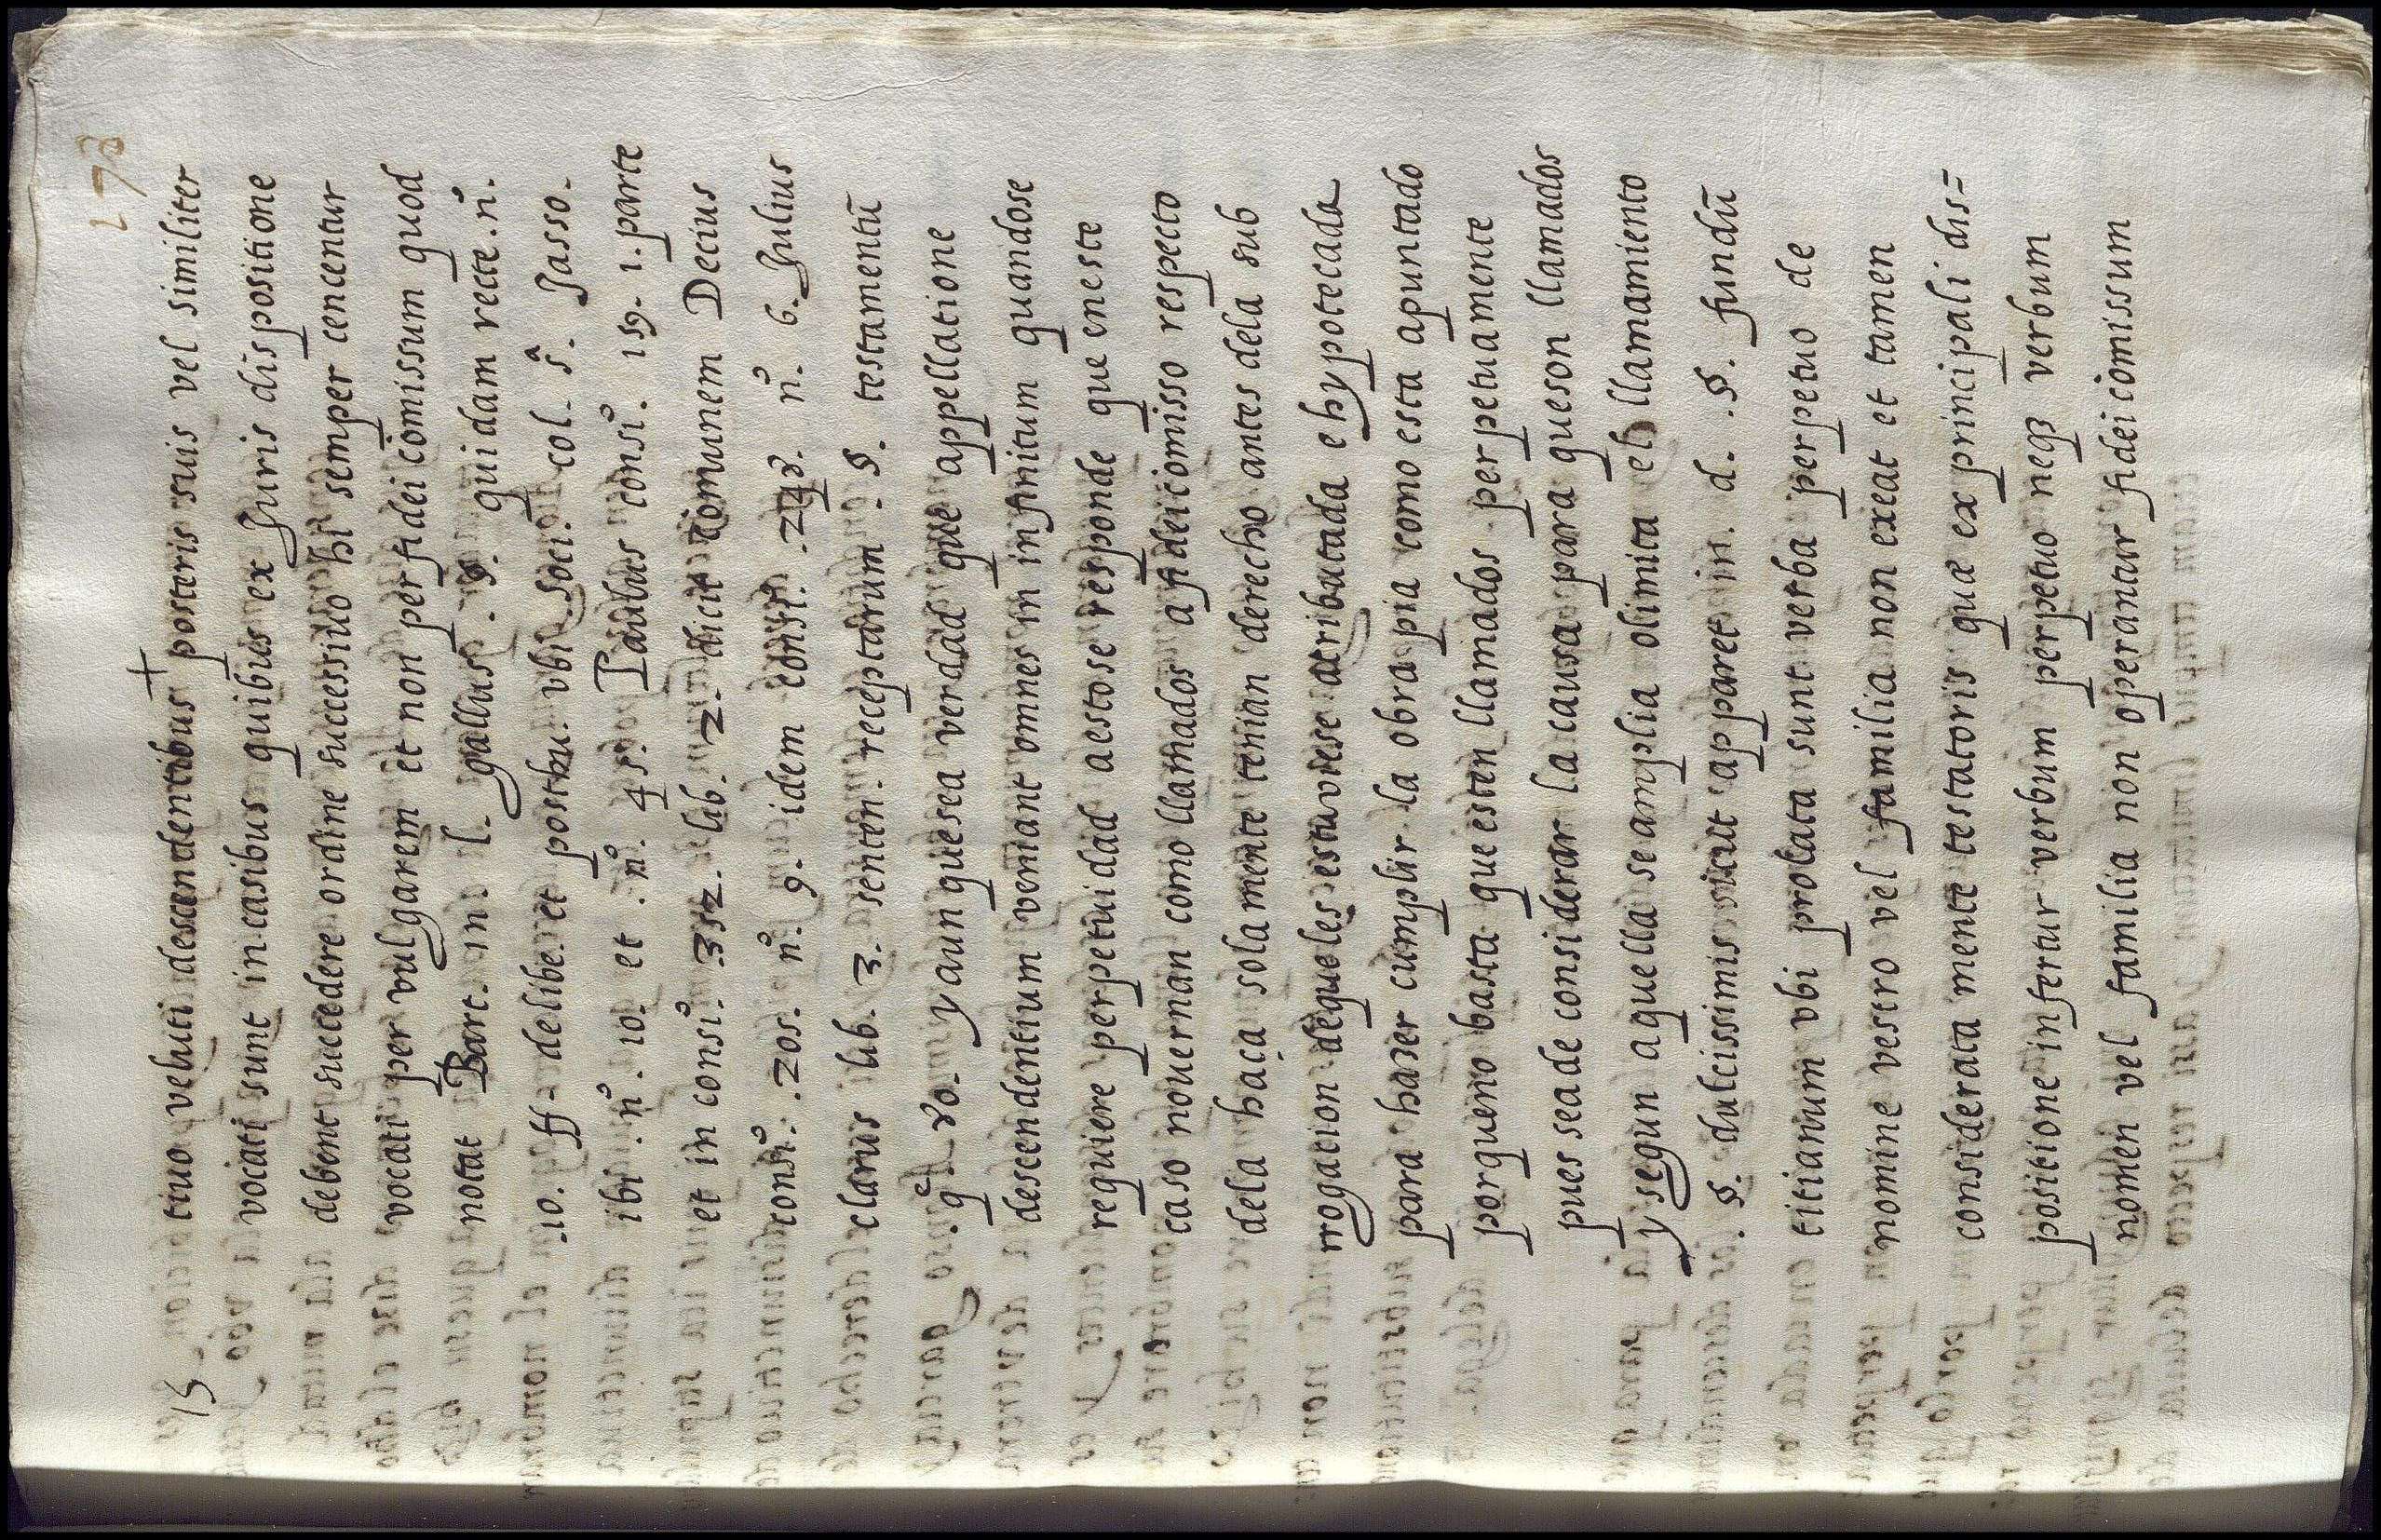 173
+
15
tiuo veluti descendentibus posteris suis vel similiter
vocati sunt in casibus quibus ex Juris dispositione
debent succedere ordine successiuo hi semper cencentur
vocati per vulgarem et non per fidei comissum quod
notat Bart. in. l. gallus. §. quidam recte. nº.
.10. ff. de libe. et posthu. vbi soci. col. 5ª. Jasso.
ibi. nº. 10. et. nº. 45. Paulus consiº. 159. 1. parte
et in consiº. 352. lib. 2. dicit comunem Decius
consiº. 205. nº. 9. idem consiº. nº. 6. Julius
clarus lib. 3. senten. receptarum. §. testamentū
y aunque sea verdad que appellatione
descendentium veniant omnes in infinitum quandose
requiere perpetuidad aestose responde que eneste
caso nouernan como llamados a fideicomisso respecto
dela haça solamente tenian derecho antes dela sub
rrogacion dequeles estuviese atributada e hypotecada
para hazer cumplir la obra pia como esta apuntado
porqueno basta que esten llamados perpetuamente
pues seade considerar la causa para queson llamados
y segun aquella se amplia olimita el llamamiento
.§. dulcissimis sicut apparet in. d. §. fundū
titianum vbi prolata sunt verba perpetuo de
nomine vestro vel familia non exeat et tamen
considerata mente testatoris quæ ex principali dis=
positione infertur verbum perpetuo neqꝫ verbum
nomen vel familia non operantur fidei comissum